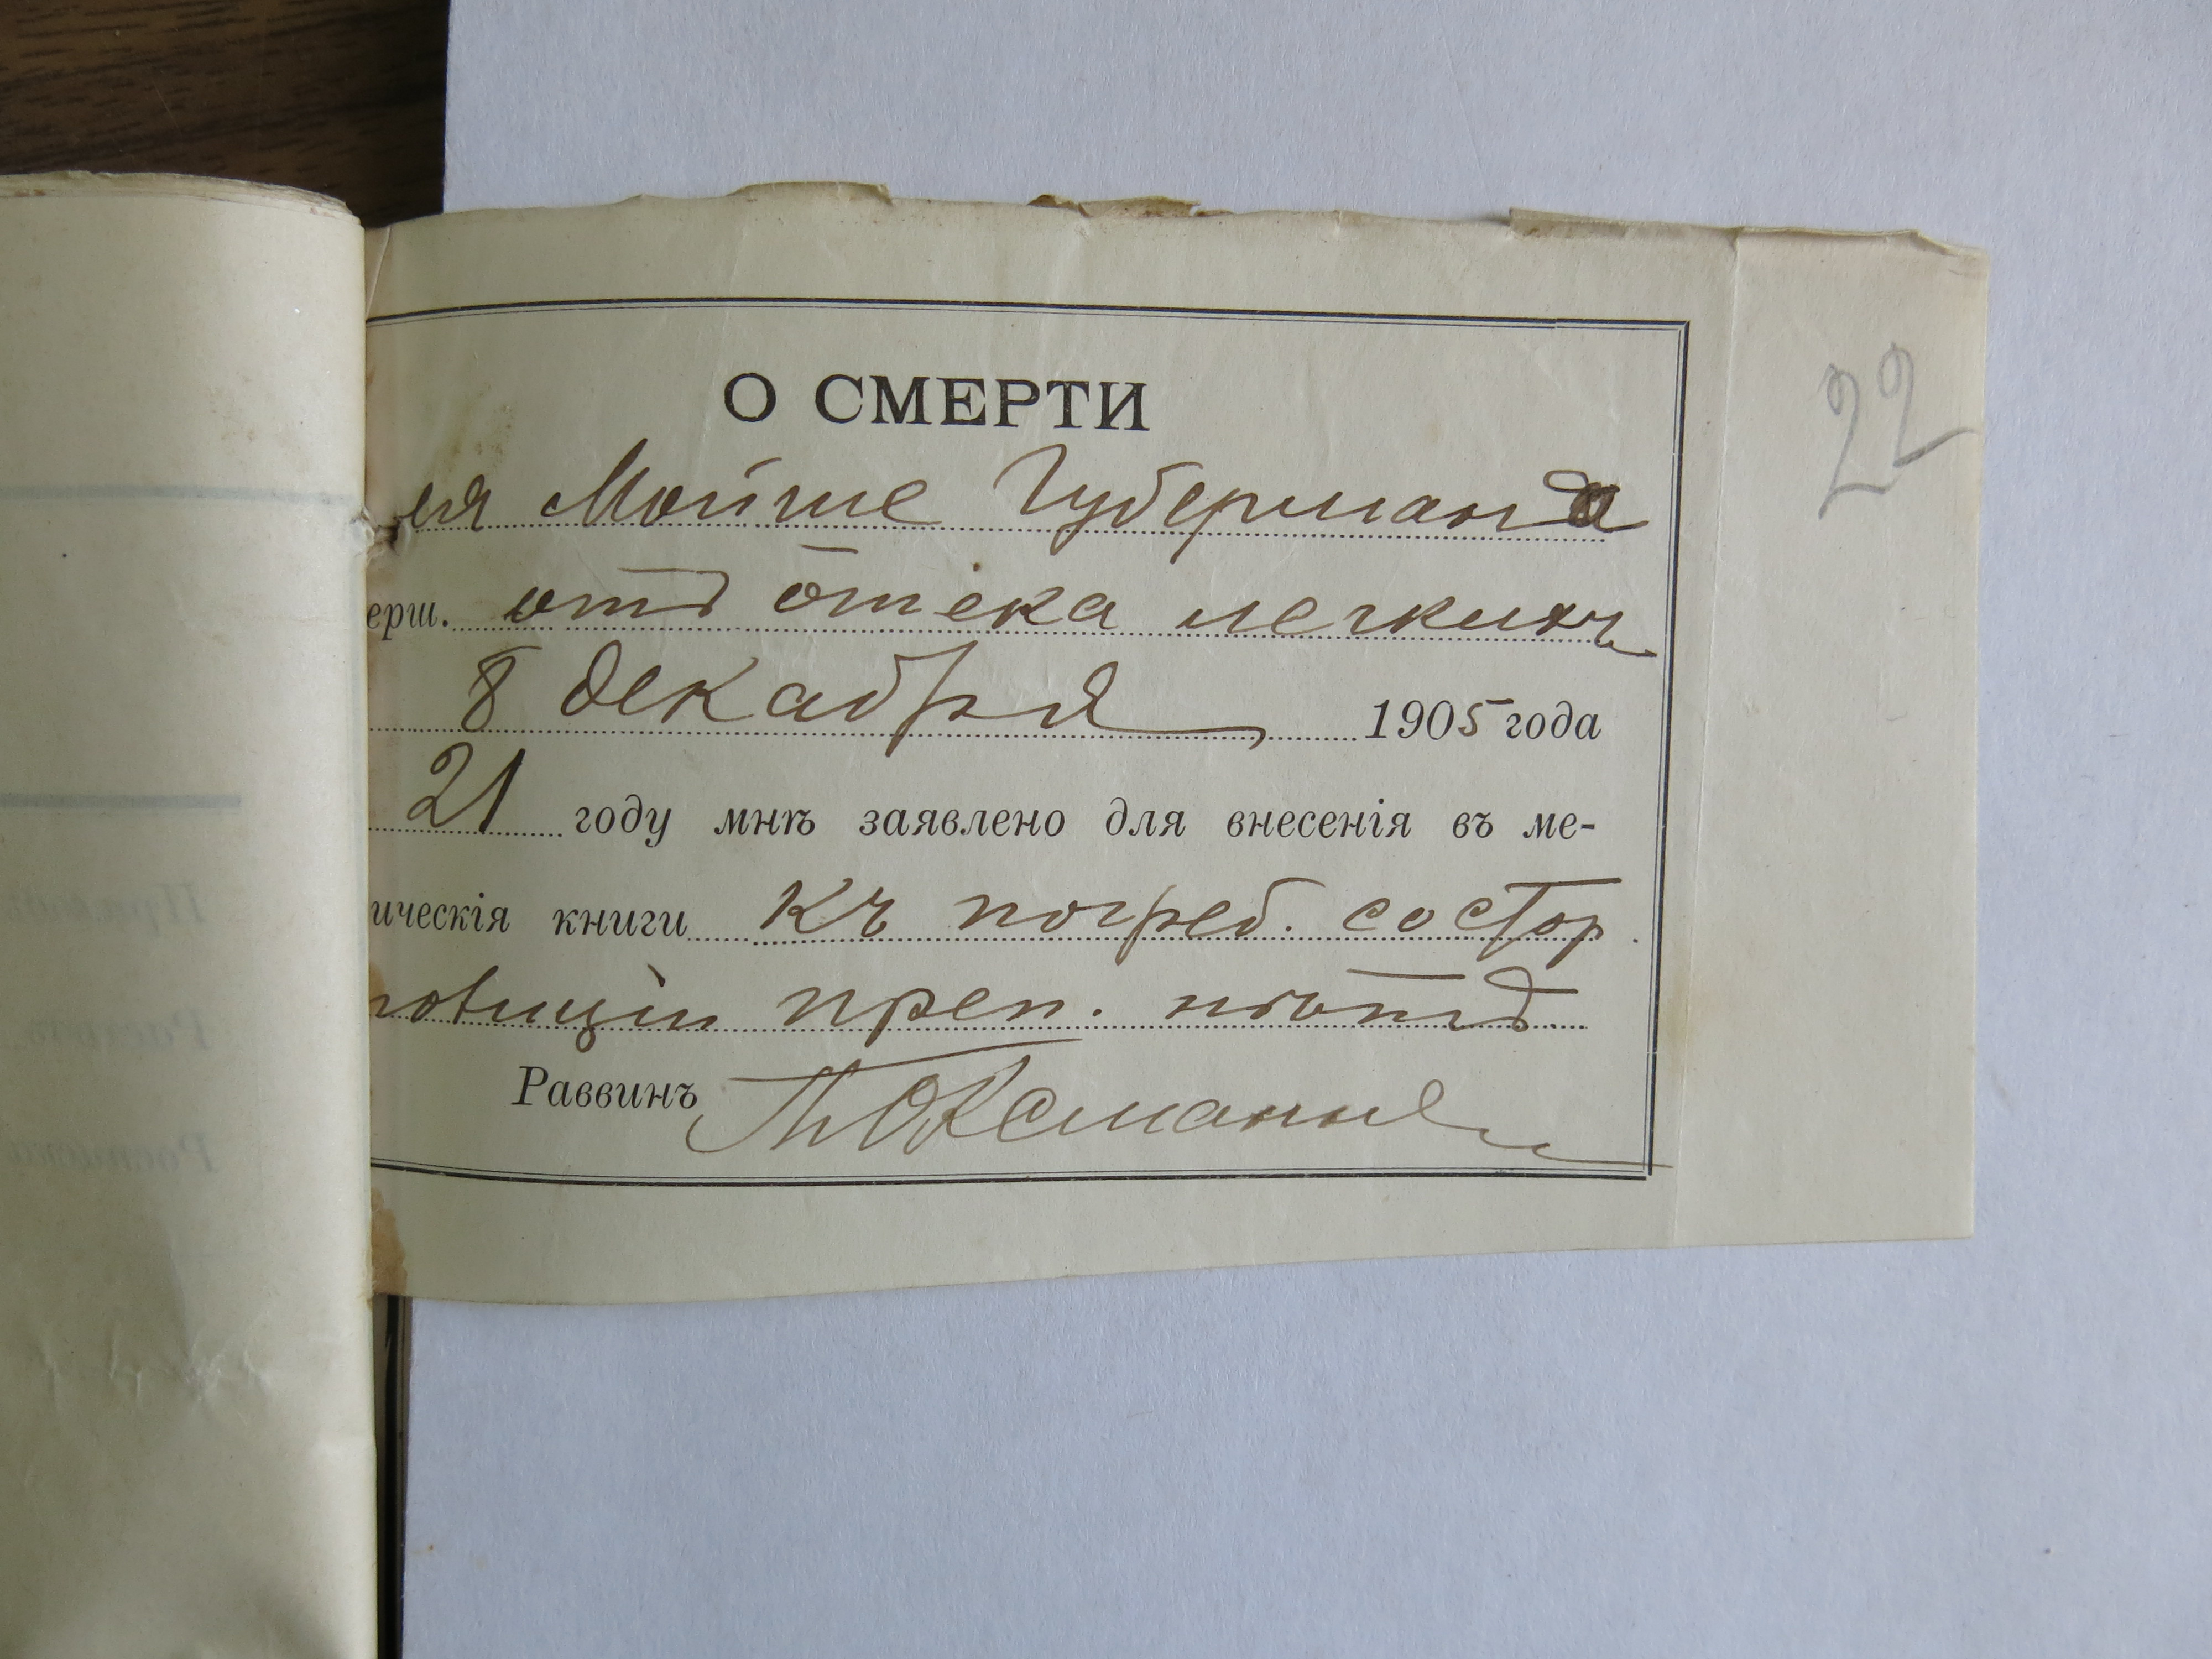 О СМЕРТИ
22
ля Мойше Губермана
ерш. отъ отека легкихъ
8 декабря 1905 года
21 году мнѣ заявлено для внесенія въ ме-
ическія книги къ погреб. со стор.
полиціи преп. нѣтъ
Раввинъ